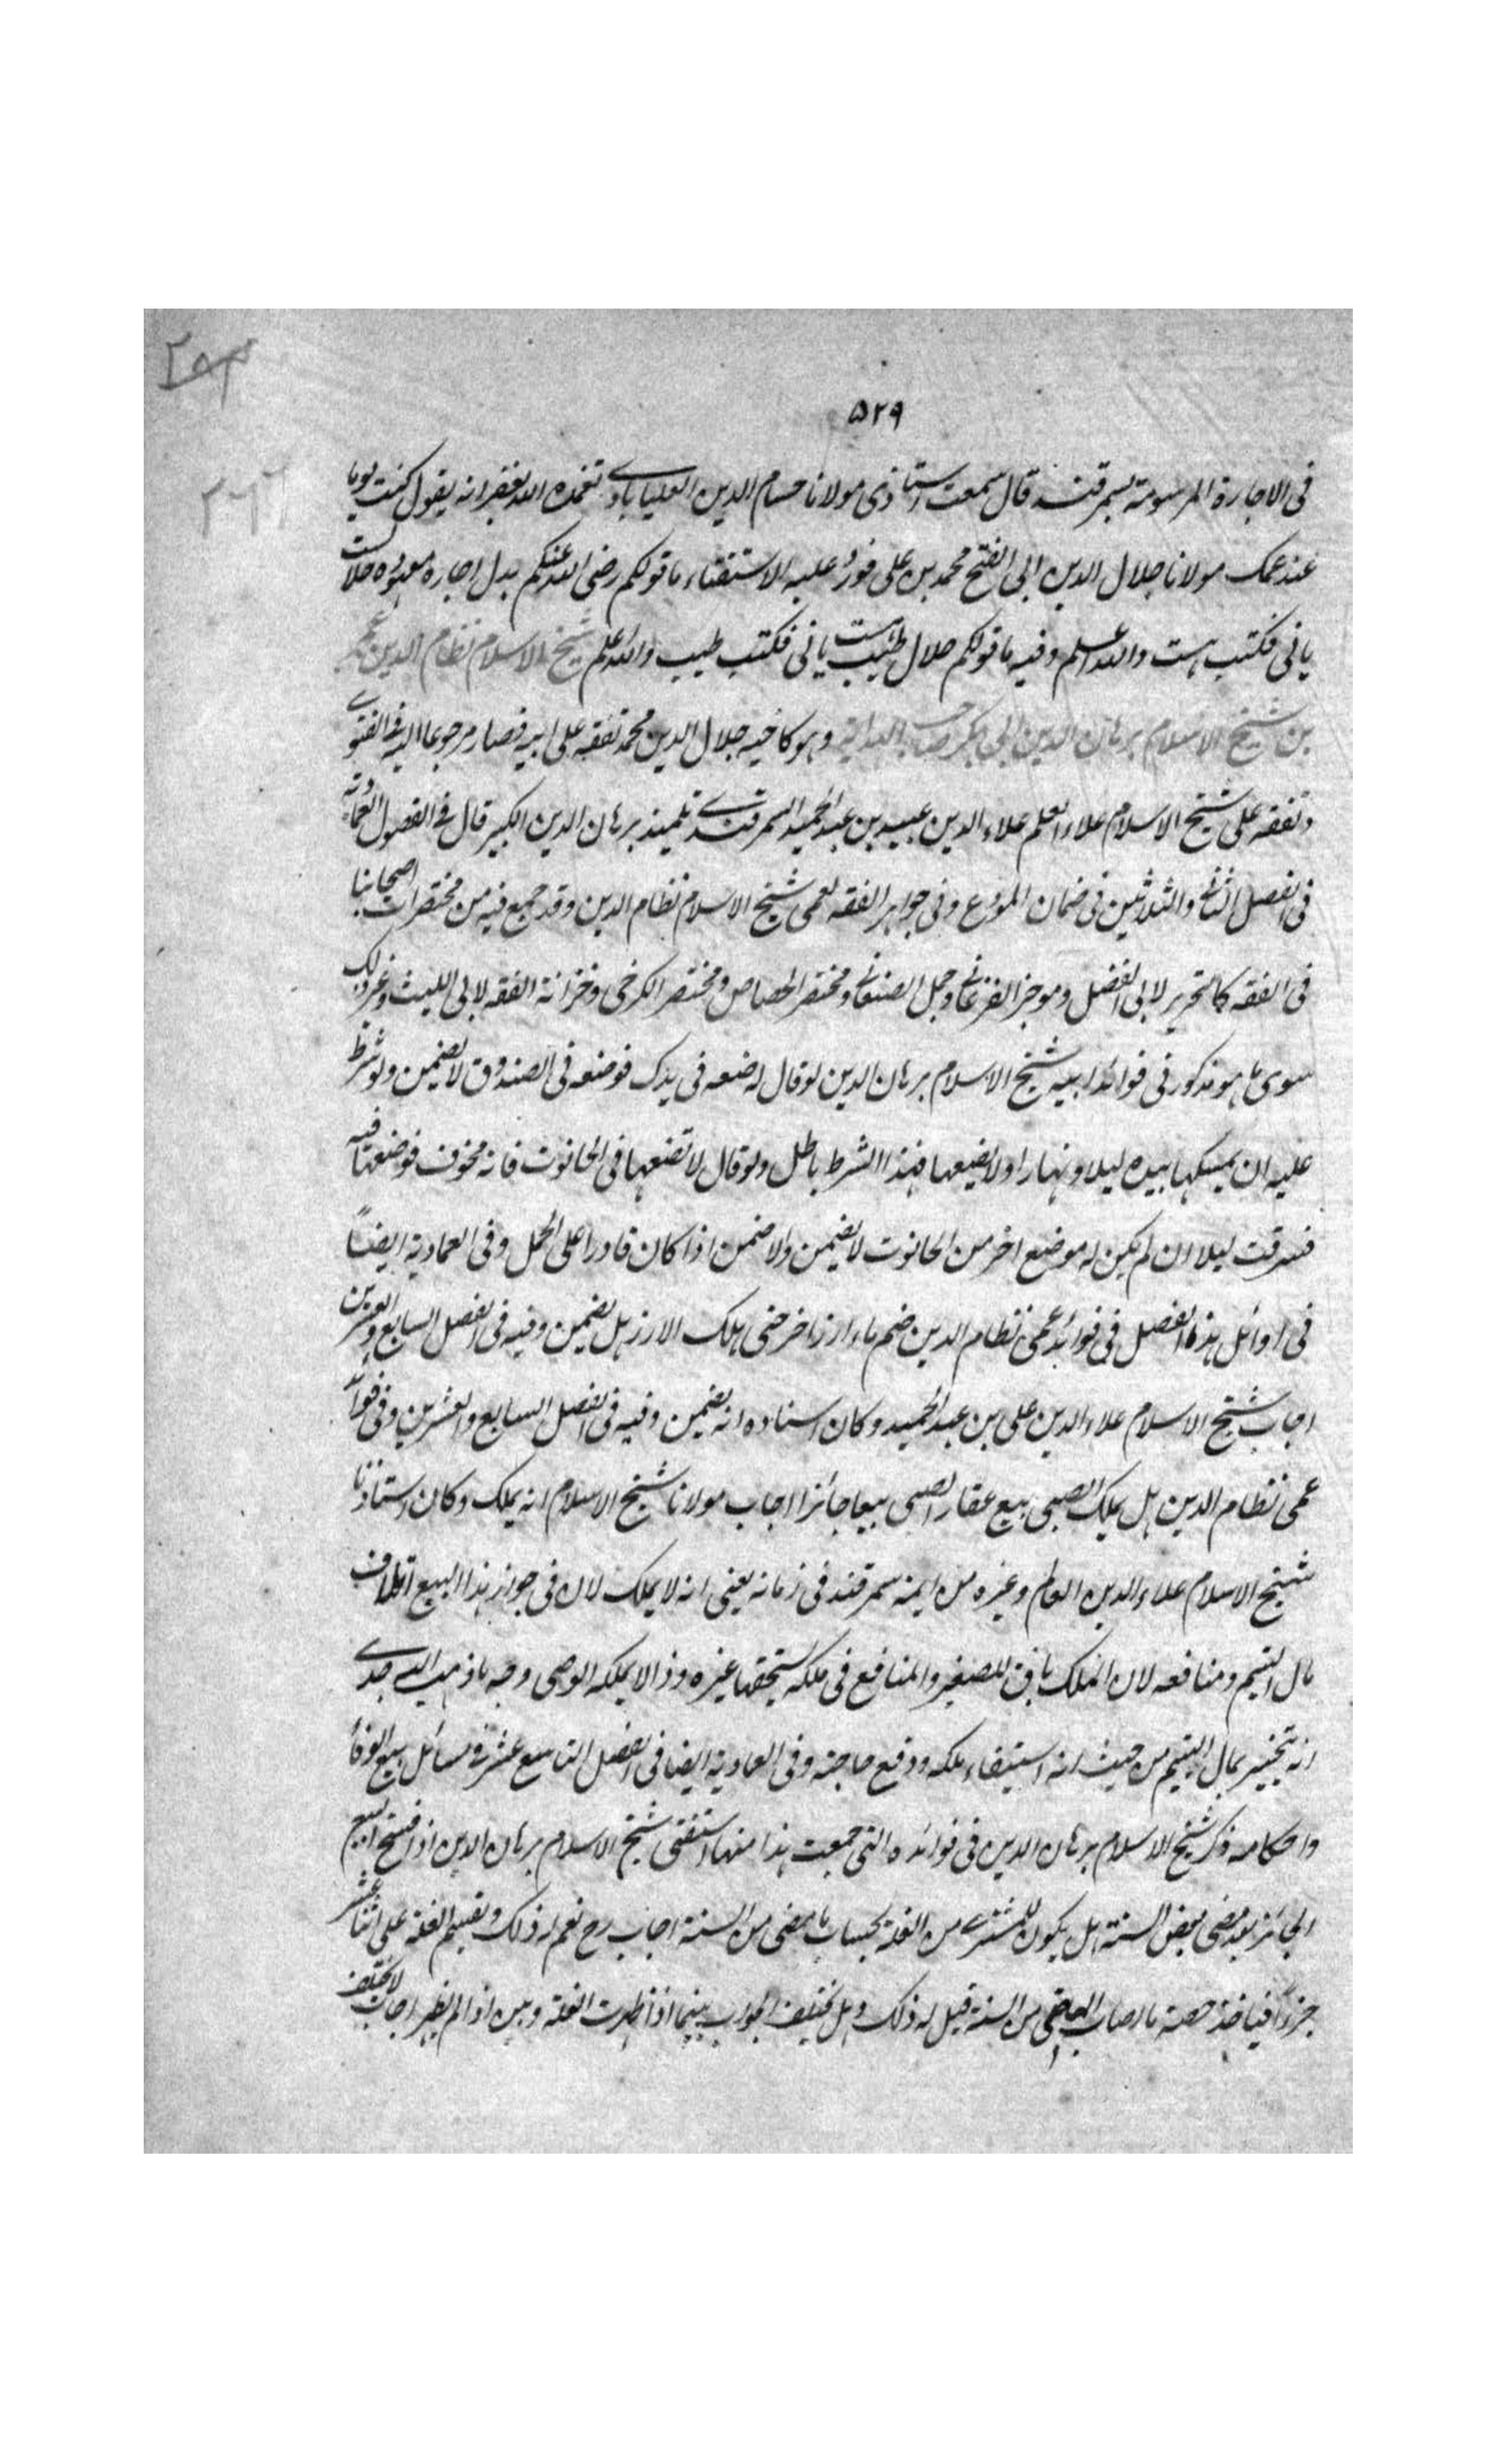 ۵۲۹
فى الاجارة المرسومة بسمرقند قال سمعت استاذى مولانا حسام الدين العليابادى تغمده الله بغفرانه يقول كنت يوما
عند عمك مولانا جلال الدين ابى الفتح محمد بن على فورد عليه الاستفتاء ما قولكم رضى الله عنكم بدل اجارة معهوده حلالست
يا نى فكتب هست والله اعلم وفيه ما قولكم حلال طيبست يا نى فكتب طيب والله اعلم شيخ الاسلام نظام الدين عمر
بن شيخ الاسلام برهان الدين ابى بكر صاحب الهداية وهو كاخيه جلال الدين محمد تفقه على ابيه فصار مرجوعا اليه فى الفتوى
وتفقه على شيخ الاسلام علاء العلم علاء الدين عبيد بن عبد الحميد السمرقندى تلميذ برهان الدين الكبير قال فى الفصول العمادية
فى الفصل الثانى والثلاثين فى ضمان المودع وفى جواهر الفقه لعمى شيخ الاسلام نظام الدين وقد جمع فيه من مختصرات اصحابنا
فى الفقه كالتجريد لابى الفضل وموجز الفرغانى وجمل الصنعانى ومختصر الجصاص ومختصر الكرخى وخزانة الفقه لابى الليث وغير ذلك
سوى ما هو مذكور فى فوائد ابيه شيخ الاسلام برهان الدين لو قال له ضعه فى يدك فوضعه فى الصندوق لا يضمن ولو شرط
عليه ان يمسكها بيده ليلا ونهارا ولا يضيعها فهذا الشرط باطل ولو قال لا تضعها فى الحانوت فانه مخوف فوضعها فيه
فسرقت ليلا ان لم يكن له موضع اخر من الحانوت لا يضمن والا ضمن اذا كان قادرا على الحمل وفى العمادية ايضاً
فى اوائل هذه الفصل فى فوائد عمى نظام الدين ضم ماء ارز اخر حتى هلك الارز هل يضمن وفيه فى الفصل السابع والعشرين
اجاب شيخ الاسلام علاء الدين على بن عبد الحميد وكان استاده انه يضمن وفيه فى الفصل السابع والعشرين وفى فوائد
عمى نظام الدين هل يملك الصبى بيع عقار الصبى بيعا جائزا اجاب مولانا شيخ الاسلام انه يملك وكان استاذنا
شيخ الاسلام علاء الدين العالم وغيره من ايمة سمرقند فى زمانه يفتى انه لا يملك لان فى جواز هذا البيع اتلاف
مال اليتيم ومنافعه لان الملك باق للصغير والمنافع فى ملكه يستحقها غيره وذا لا يملكه الوصى وجه ما ذهب اليه جدى
انه بمال اليتيم من حيث انه استيفاء ملكه ودفع حاجته وفى العمادية ايضا فى الفصل التاسع عشر فى مسائل بيع الوفاء
واحكامه ذكر شيخ الاسلام برهان الدين فى فوائده التى جمعت هذا منها استفتى شيخ الاسلام برهان الدين اذا فسخ البيع
الجائز بعد مضى بعض السنة هل يكون للمشترى من الغلة بحساب ما مضى من السنة اجاب رح نعم له ذلك وتقسيم الغلة على اثنا عشر
جزءاً فياخذ حصة ما اصاب الماضى من السنة قيل له ذلك وهل يختلف الجواب بينما اذا ظهرت الغلة وبين اذا لم يظهر اجاب لا يختلف